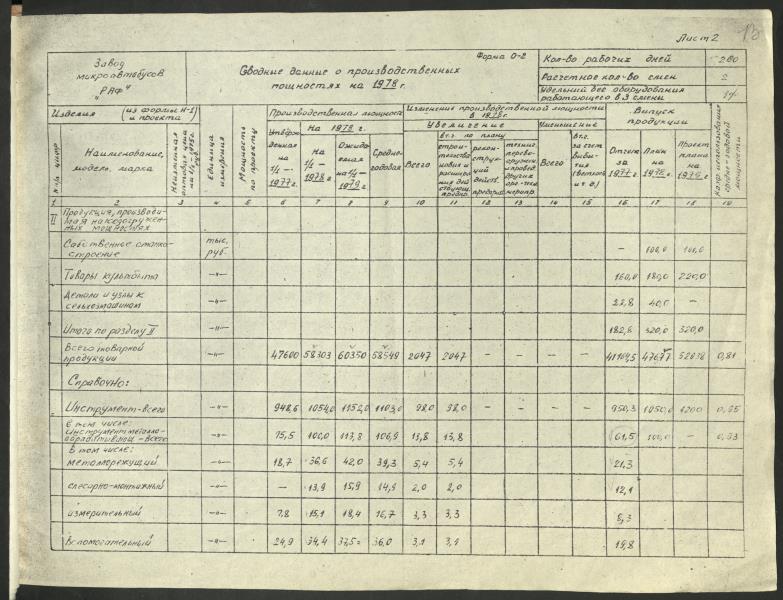 Лист 2
13
Завод
микроавтобусов
"РАФ"
Сводные данные о производственных
мощностях на 1978 г.
Форма О-2
Кол-во рабочих дней 260
Расчетное кол-во смен 2
Удельный вес оборудования
работающего в 3 смены
№ п/п
Изделия (из формы Н-1)
и проекта
Наименование,
модель, марка
Неизменная
оптовая цена
на 1/I-1975г.
руб.
Единица
измерения
Мощность
по проекту
Производственная мощность
Утверж-
денная
на
1/I-
1977г.
На 1978 г.
На
1/I-
1978 г.
Ожида-
емая
на 1/I-
1979 г.
Средне-
годовая
Изменения производственной мощности
в 1978 г.
Увеличение
Всего
в т.ч. по плану
строи-
тельства
новых и
расшире-
ния дей-
ствующ.
предпр.
рекон-
струк-
ций
действ.
предприят.
Уменьшение
Всего
в т.ч.
за счет
выбы-
тия
(ветхост
и т.д.)
Выпуск
продукции
Отчет
за
1977 г.
План
на
1978 г.
Проект
плана
на
1979 г.
Коэф. использования
средне-годовой
мощности
1 2 3 4 5 6 7 8 9 10 11 12 13 14 15 16 17 18 19
II Продукция, производи-
мая на недогружен-
ных мощностях
Собственное станко-
строение тыс.
руб. – 100,0 100,0
Товары культбыта -"- 160,0 180,0 220,0
Детали и узлы к
сельхозмашинам -"- 22,8 40,0 –
Итого по разделу II -"- 182,8 320,0 320,0
Всего товарной
продукции -"- 47600 58303 60350 58549 2047 2047 – – – – 41104,5 47677 52038 0,81
Справочно:
Инструмент-всего -"- 948,6 1054,0 1152,0 1103,0 98,0 98,0 – – – – 950,3 1050,0 1200 0,95
в том числе:
инструмент металло-
обрабатывающ – всего -"- 75,5 100,0 113,8 106,9 13,8 13,8 61,5 100,0 – 0,93
В том числе:
металлорежущий -"- 18,7 36,6 42,0 39,3 5,4 5,4 21,3
слесарно-монтажный -"- – 13,9 15,9 14,9 2,0 2,0 12,1
измерительный -"- 7,8 15,1 18,4 16,7 3,3 3,3 8,3
Вспомогательный -"- 24,9 34,4 37,5 36,0 3,1 3,1 19,8